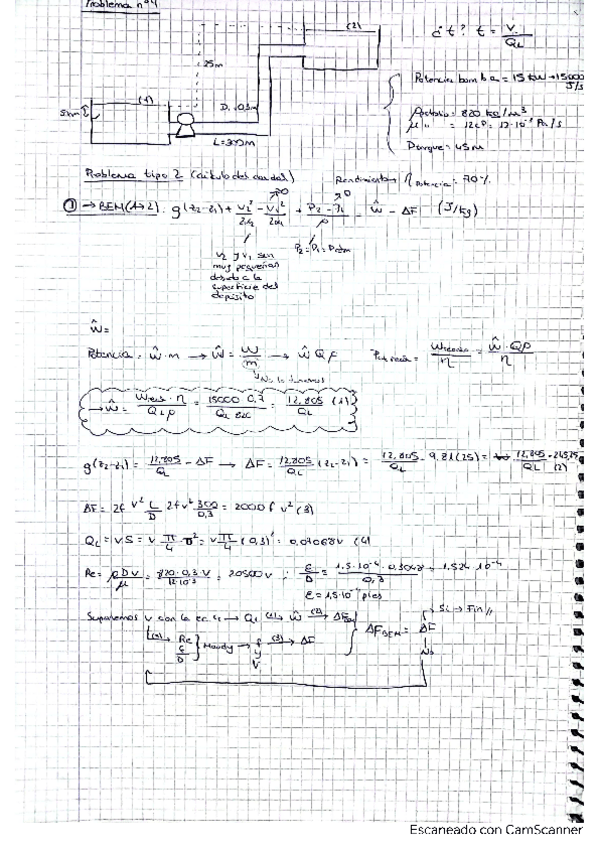 Problema nº4
¿t? t = V / QL
(2)
Potencia bomba = 15 kW → 15000 J/s
25m
ρ petróleo = 820 kg/m³
μ " = 12 cP = 12·10⁻³ Pa/s
(1)
5m
D = 0,3m
L = 300m
Dtanque = 45m
Problema tipo 2 (cálculo del caudal)
Rendimiento η potencia: 70%
① → BEM (1→2): g(z₂-z₁) + V₂²/2α₂ - V₁²/2α₁ + P₂-P₁/ρ = Ŵ - ΔF (J/kg)
P₂ = P₁ = Patm
V₂ y V₁ son
muy pequeñas
debido a la
superficie del
depósito
Ŵ =
Potencia = Ŵ·m → Ŵ = W/m → Ŵ Qρ
Potencia = Wteórica/η = Ŵ·Qρ/η
No lo tenemos
→ Ŵ = Wreal·η / QLρ = 15000·0,7 / QL·820 = 12,805 / QL (1)
g(z₂-z₁) = 12,805/QL - ΔF → ΔF = 12,805/QL (z₂-z₁) = 12,805/QL - 9,81(25) = 12,805/QL - 245,25 (2)
ΔF = 2f v² L/D = 2f v² 300/0,3 = 2000 f v² (3)
QL = v S = v π/4 D² = v π/4 (0,3)² = 0,07068 v (4)
Re = ρDv/μ = 820·0,3·v / 12·10⁻³ = 20500 v ; ε/D = 1,5·10⁻⁴·0,3048 / 0,3 = 1,524·10⁻⁴
ε = 1,5·10⁻⁴ pies
Suponemos v con la ec. 4 → QL (1)→ Ŵ (2)→ ΔFBEM
Re
ε/D
Moody → f y v (3)→ ΔF
ΔFBEM = ΔF
Sí → Fin //
No
Escaneado con CamScanner